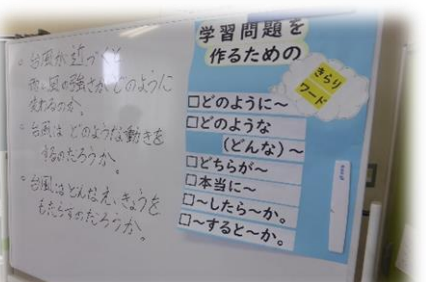 。台風が近づくと
雨、風の強さがどのように
変わるのか。
。台風はどのような動きを
するのだろうか。
。台風はどんなえいきょうを
もたらすのだろうか。
学習問題を
作るための
きらり
ワード
□どのように～
□どのような
（どんな）～
□どちらが～
□本当に～
□～したら～か。
□～すると～か。